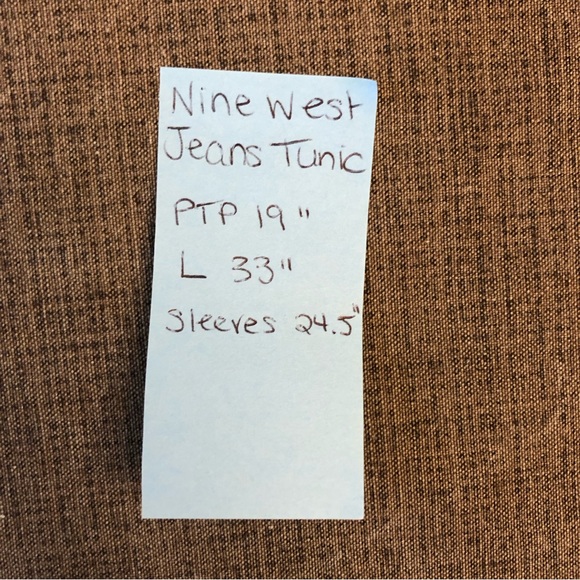 Nine West
Jeans Tunic
PTP 19"
L 33"
Sleeves 24.5"